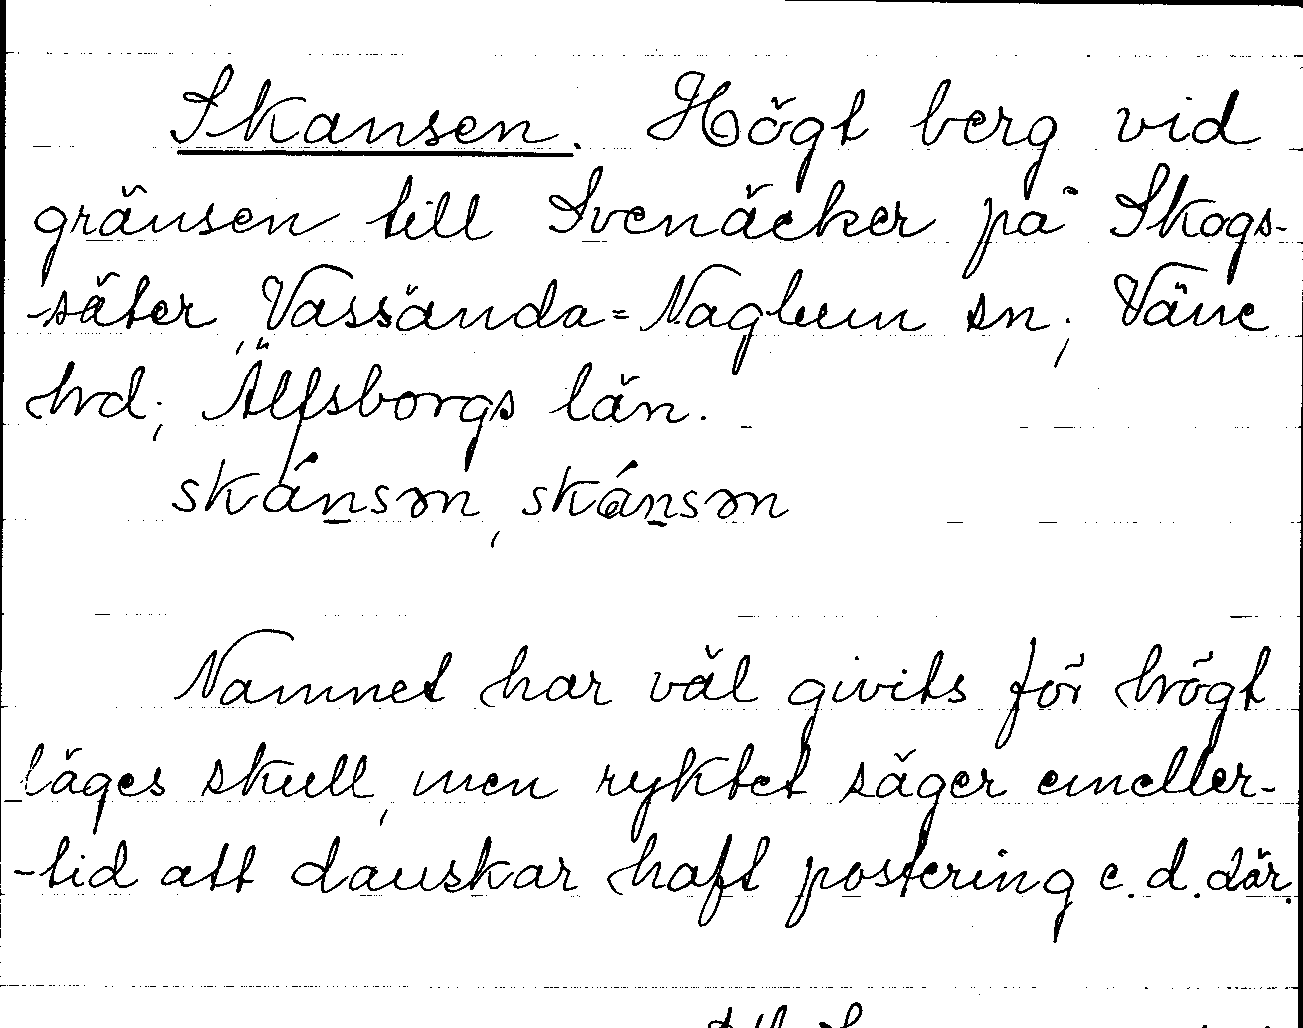 Skansen. Högt berg vid
gränsen till Svenäcker på Skogs-
-säter, Vassända=Naglum sn; Väne
hrd; Älfsborgs län.
skánsən, skánsən
Namnet har väl givits för högt
läges skull, men ryktet säger emeller-
-tid att danskar haft postering e.d. där.